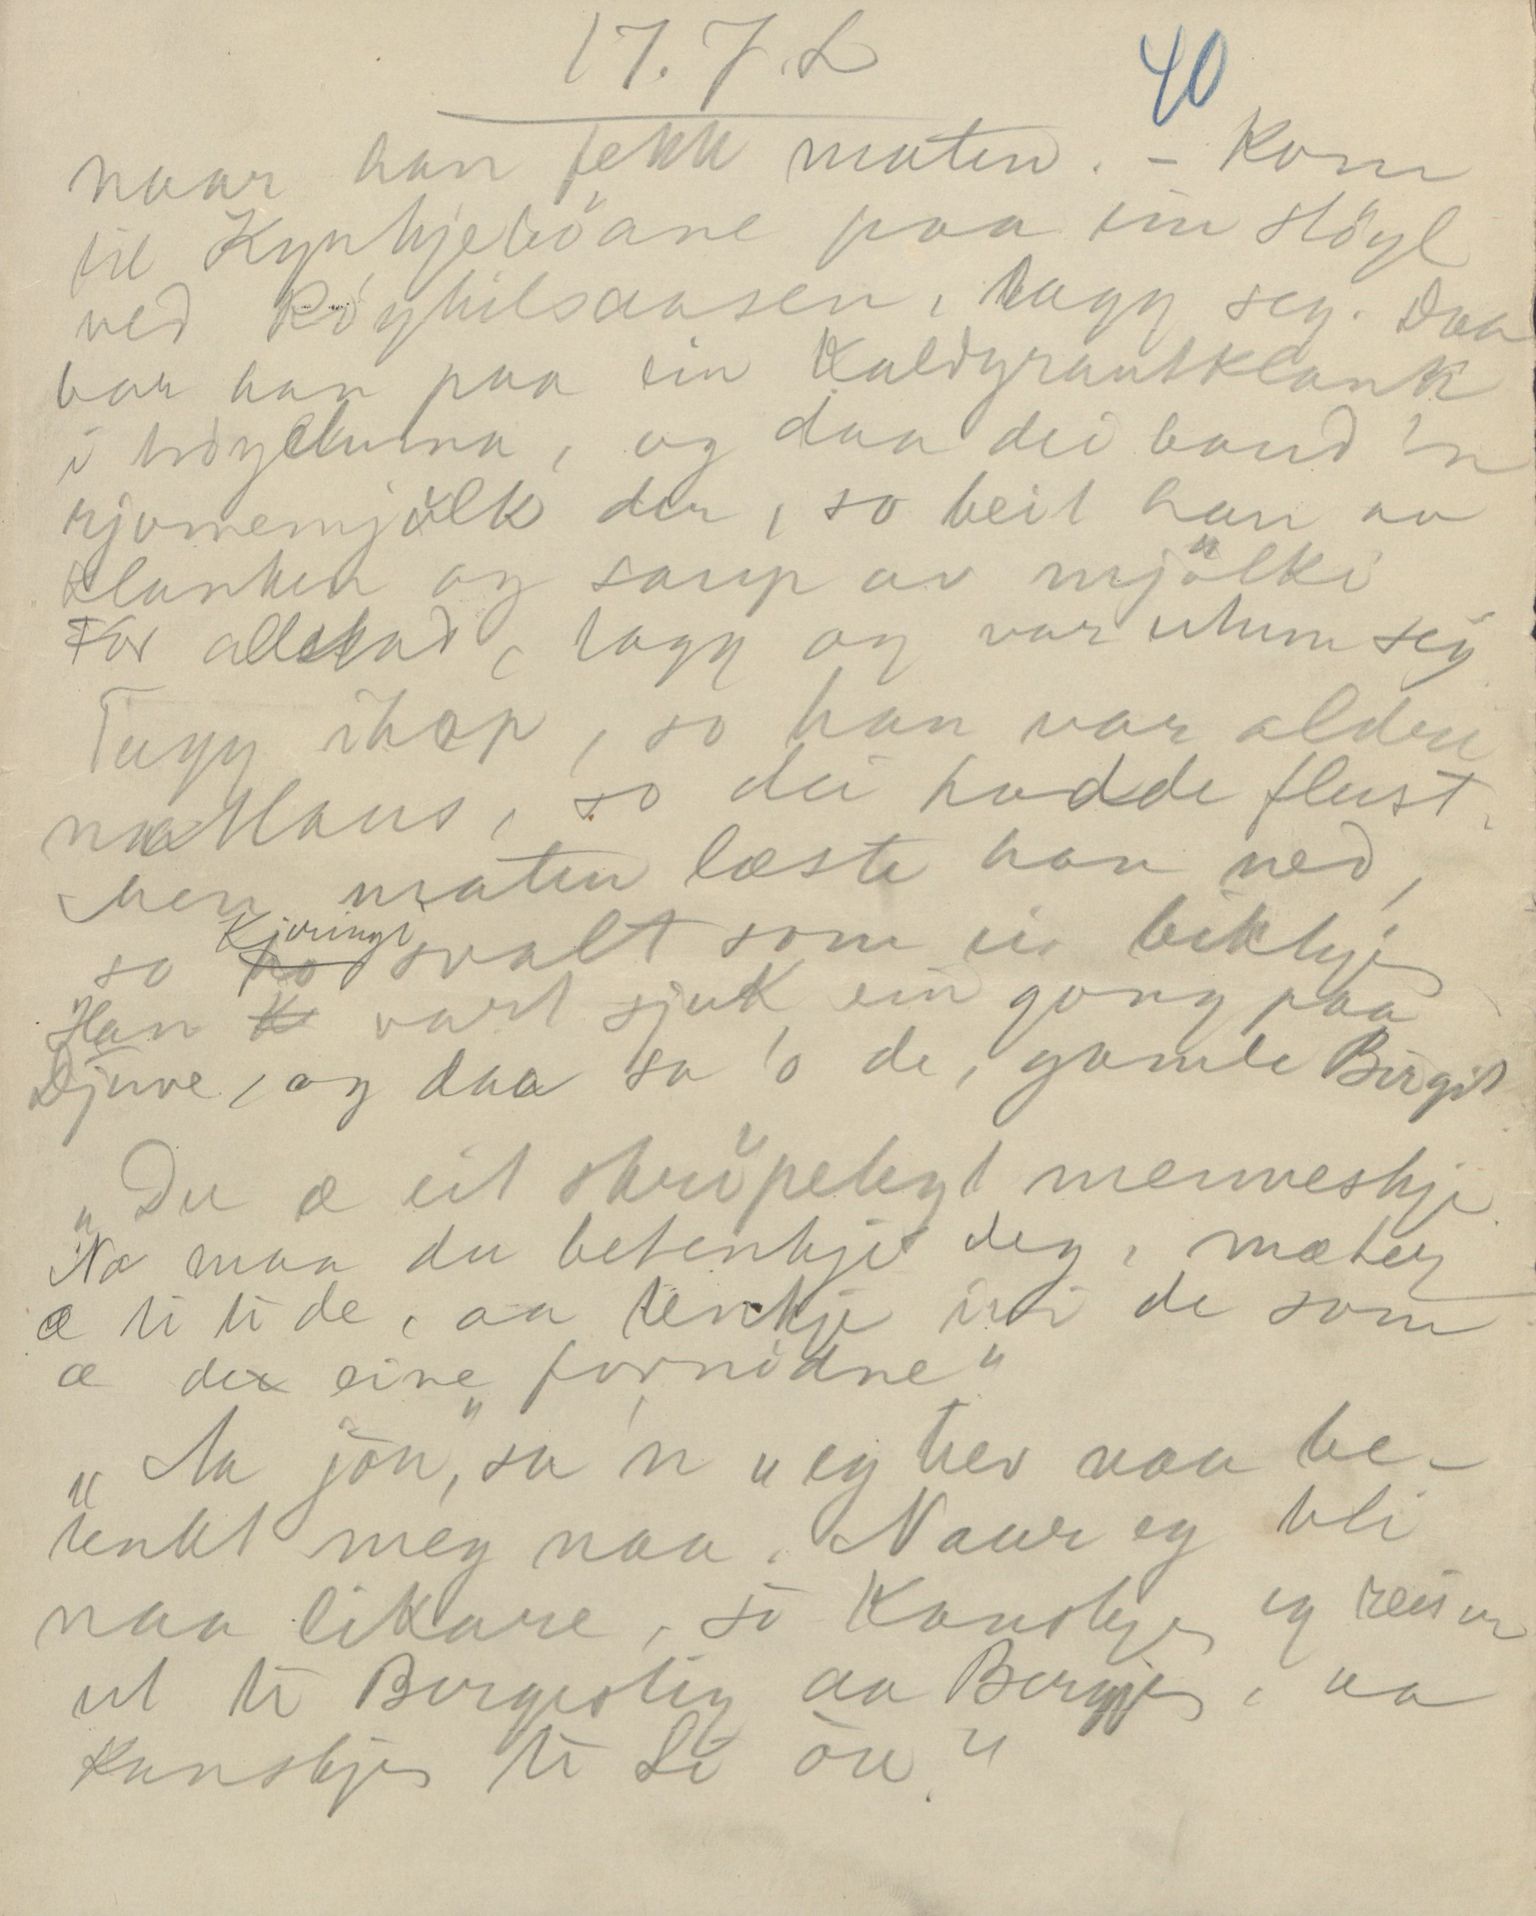 17.7.L
40
naar han fekk maten. – Kom
til Kynkjeböane paa ein stöyl
ved Röyhilsaasen, tagg seg. Daa
bar han paa ein Kaldgrautklank
i tröyelumma, og daa dei baud 'n
rjomemjölk der, so beit han av
klanken og saup av mjölki
For allstad, tagg og var utum seg
Tugg ihop, so han var aldri
naablaus, so dei hadde flust.
men maten læste han ned,
so Kjeringi svalt som ei bikkje
Han vart sjuk ein gong paa
Djuve, og daa sa 'o de, gamle Birgit
„Du æ eit skröpelegt menneskje
No maa du betenkje deg, mæ hey
æ ti ti de, aa tenkje um de som
æ dex eine fornödne"
„Aa jön", sa 'n „eg hev naa be-
tenkt meg naa. Naar eg bli
naa likare, so Kanskje eg reiser
ut ti Borgestig aa Bergje, aa
Kanskje ti Li öu."